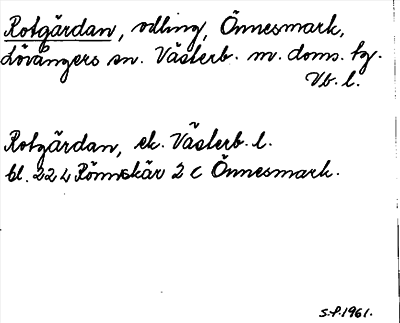 Rotgärdan, odling, Önnesmark,
Lövångers sn. Västerb. m. doms. tg.
Vb. l.
Rotgärdan, ek. Västerb. l.
bl. 22 L Rönnskär 2 c Önnesmark.
S.P. 1961.